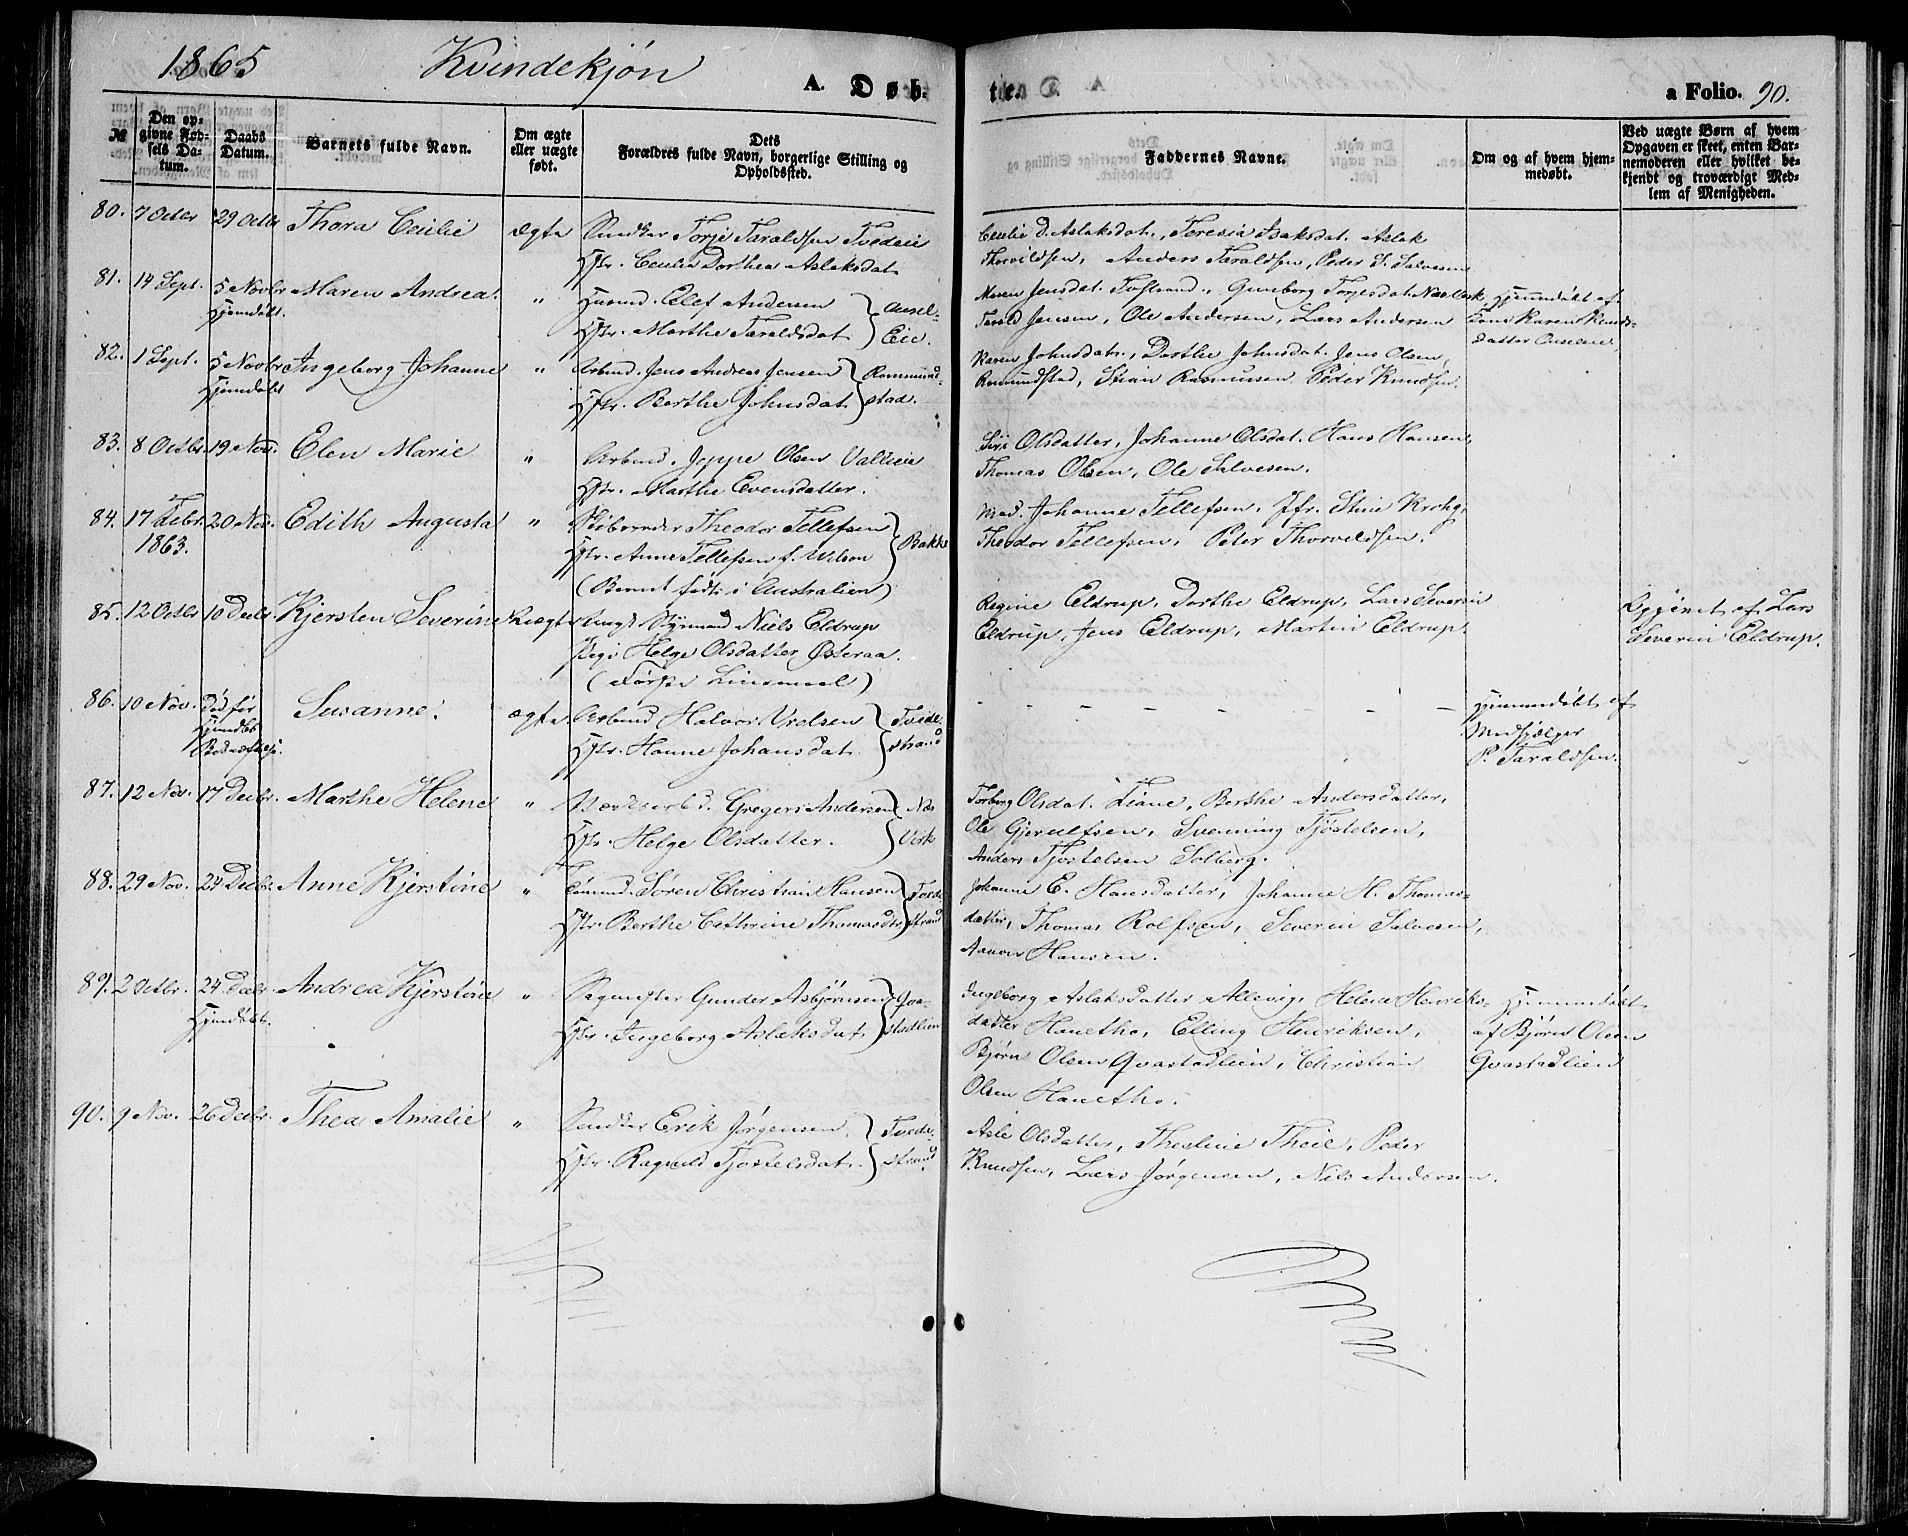 1865 Kvindekjøn A. Døb-
te. a Folio. 90.
№
Den op-
givne Fød-
sels Da-
tum.
Daabs
Datum.
Barnets fulde Navn.
Om ægte
eller uægte
født.
Dets
Forældres fulde Navn, borgerlige Stilling og
Opholdssted.
Faddernes Navne.
Om og af hvem hjem-
medøbt.
Ved uægte Børn af hvem
Opgaven er skeet, enten Bar-
nemoderen eller hvilket be-
kjendt og troværdigt Med-
lem af Menigheden.
80. 7 Octbr 29 Octbr Thora Cecilie ægte Snedker Torje Taraldsen Tvedeie
Hstr. Cecilie Dorthea Aslaksdat.
Cecilie D. Aslaksdat., Teresia Isaksdat. Aslak
Thorvildsen, Anders Taraldsen, Peder S. Salvesen
81. 14 Sept. 5 Novbr Maren Andrea. " Husmd. Olef Andersen
Hjemdøbt. Hstr. Marthe Taraldsdat.
Maren Jensdat. Gunborg Torjesdat.
Tarald Jensen, Ole Andersen, Lars Andersen
Hjemmedøbt af
Kone Karen Knuds-
datter
82. 1 Sept. 5 Novbr Ingeborg Johanne " Arbmd. Jens Andreas Jensen Rommund-
Hjemdøbt Hstr. Berthe Johnsdat. stad.
Karen Johnsdatr., Dorthe Johnsdat. Jens Olsen
Rommundstad, Stian Rasmussen Peder Knudsen.
83. 8 Octbr 19 Nov. Elen Marie " Arbmd. Joppe Olsen Valleie
Hstr. Marthe Evensdatter.
Siri Olsdatter, Johanne Olsdat. Hans Hansen,
Thomas Olsen, Ole Salvesen.
84. 17 Febr. 20 Nov. Edith Augusta " Theodor Tellefsen
1863. Hstr. Anne Tellefsen f. Wilson Bakke
(Barnet født i Australien)
Mad. Johanne Tellefsen, Jfr. Stine Krohg,
Theodor Tellefsen, Peter Thorvildsen.
85. 12 Octbr 10 Decbr Kjersten Severine Uægte Ungk Styrmand Niels Eldrup
Pige Helge Olsdatter Østeraa.
(Første Leiermaal)
Regine Eldrup, Dorthe Eldrup, Lars Severin
Eldrup, Jens Eldrup, Martin Eldrup.
Opgivet af Lars
Severin Eldrup.
86. 10 Nov. Død før Susanne. ægte. Arbmd Halvor Vrelsen Tvede-
Hjemdøb Hstr. Hanne Johansdat. strand
- - - - - - - -
Hjemmedøbt af
Medhjælper
P. Taraldsen.
87. 12 Nov. 17 Decbr. Marthe Helene " Gregers Andersen Næs
Hstr. Helge Olsdatter. Verk
Torborg Olsdat. Liane, Berthe Andersdatter,
Ole Gjerulfsen, Svenning Tjøstelsen,
Anders Tjøstelsen Solberg.
88. 29 Nov. 24 Decbr. Anne Kjerstine " Tømmd. Søren Christian Hansen Tvede-
Hstr. Berthe Cathrine Thomasdtr strand
Johanne E. Hansdatter, Johanne H. Thomas-
datter, Thomas Rolfsen, Severin Salvesen,
Hansen.
89. 2 Octbr. 24 Decbr. Andrea Kjerstine " Sagmester Gunder Asbjørnsen Qva-
Hjemdøbt. Hstr. Ingeborg Aslaksdat. stadlien
Ingeborg Aslaksdatter Allevig, Helene Henriks-
datter Hanetho, Elling Henriksen,
Bjørn Olsen Qvastadlien, Christian
Olsen Hanetho.
Hjemmedøbt
af Bjørn Olsen
Qvastadlien
90. 9 Nov. 26 Decbr. Thea Amalie " Snedker Erik Jørgensen Tvede-
Hstr. Ragnild Tjøstelsdat. strand
Asle Olsdatter, Thedine Theie, Peder
Knudsen, Lars Jørgensen, Nils Andersen.